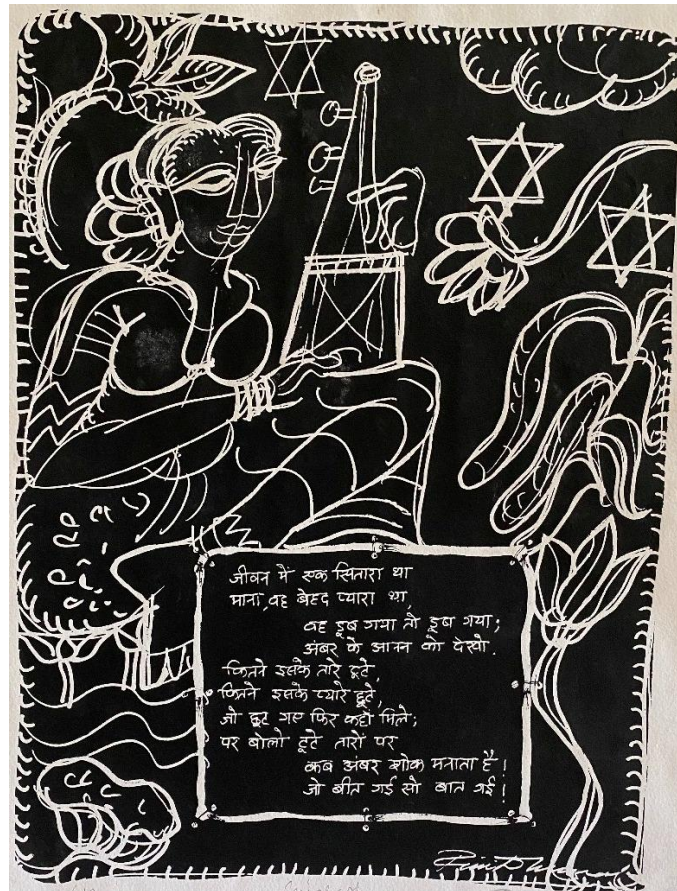 जीवन में एक सितारा था
माना, वह बेहद प्यारा था,
वह डूब गया तो डूब गया;
अंबर के आनन को देखो.
कितने इसके तारे टूटे,
कितने इसके प्यारे छूटे,
जो छूट गए फिर कहाँ मिले;
पर बोलो टूटे तारों पर
कब अंबर शोक मनाता है!
जो बीत गई सो बात गई!